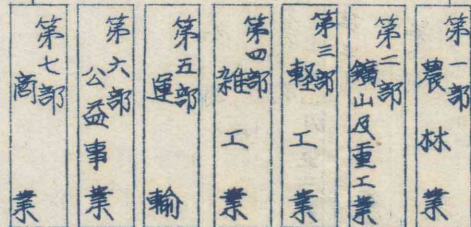 第一部 農林業
第二部 鑛山及重工業
第三部 軽工業
第四部 雑工業
第五部 運輸
第六部 公益事業
第七部 商業